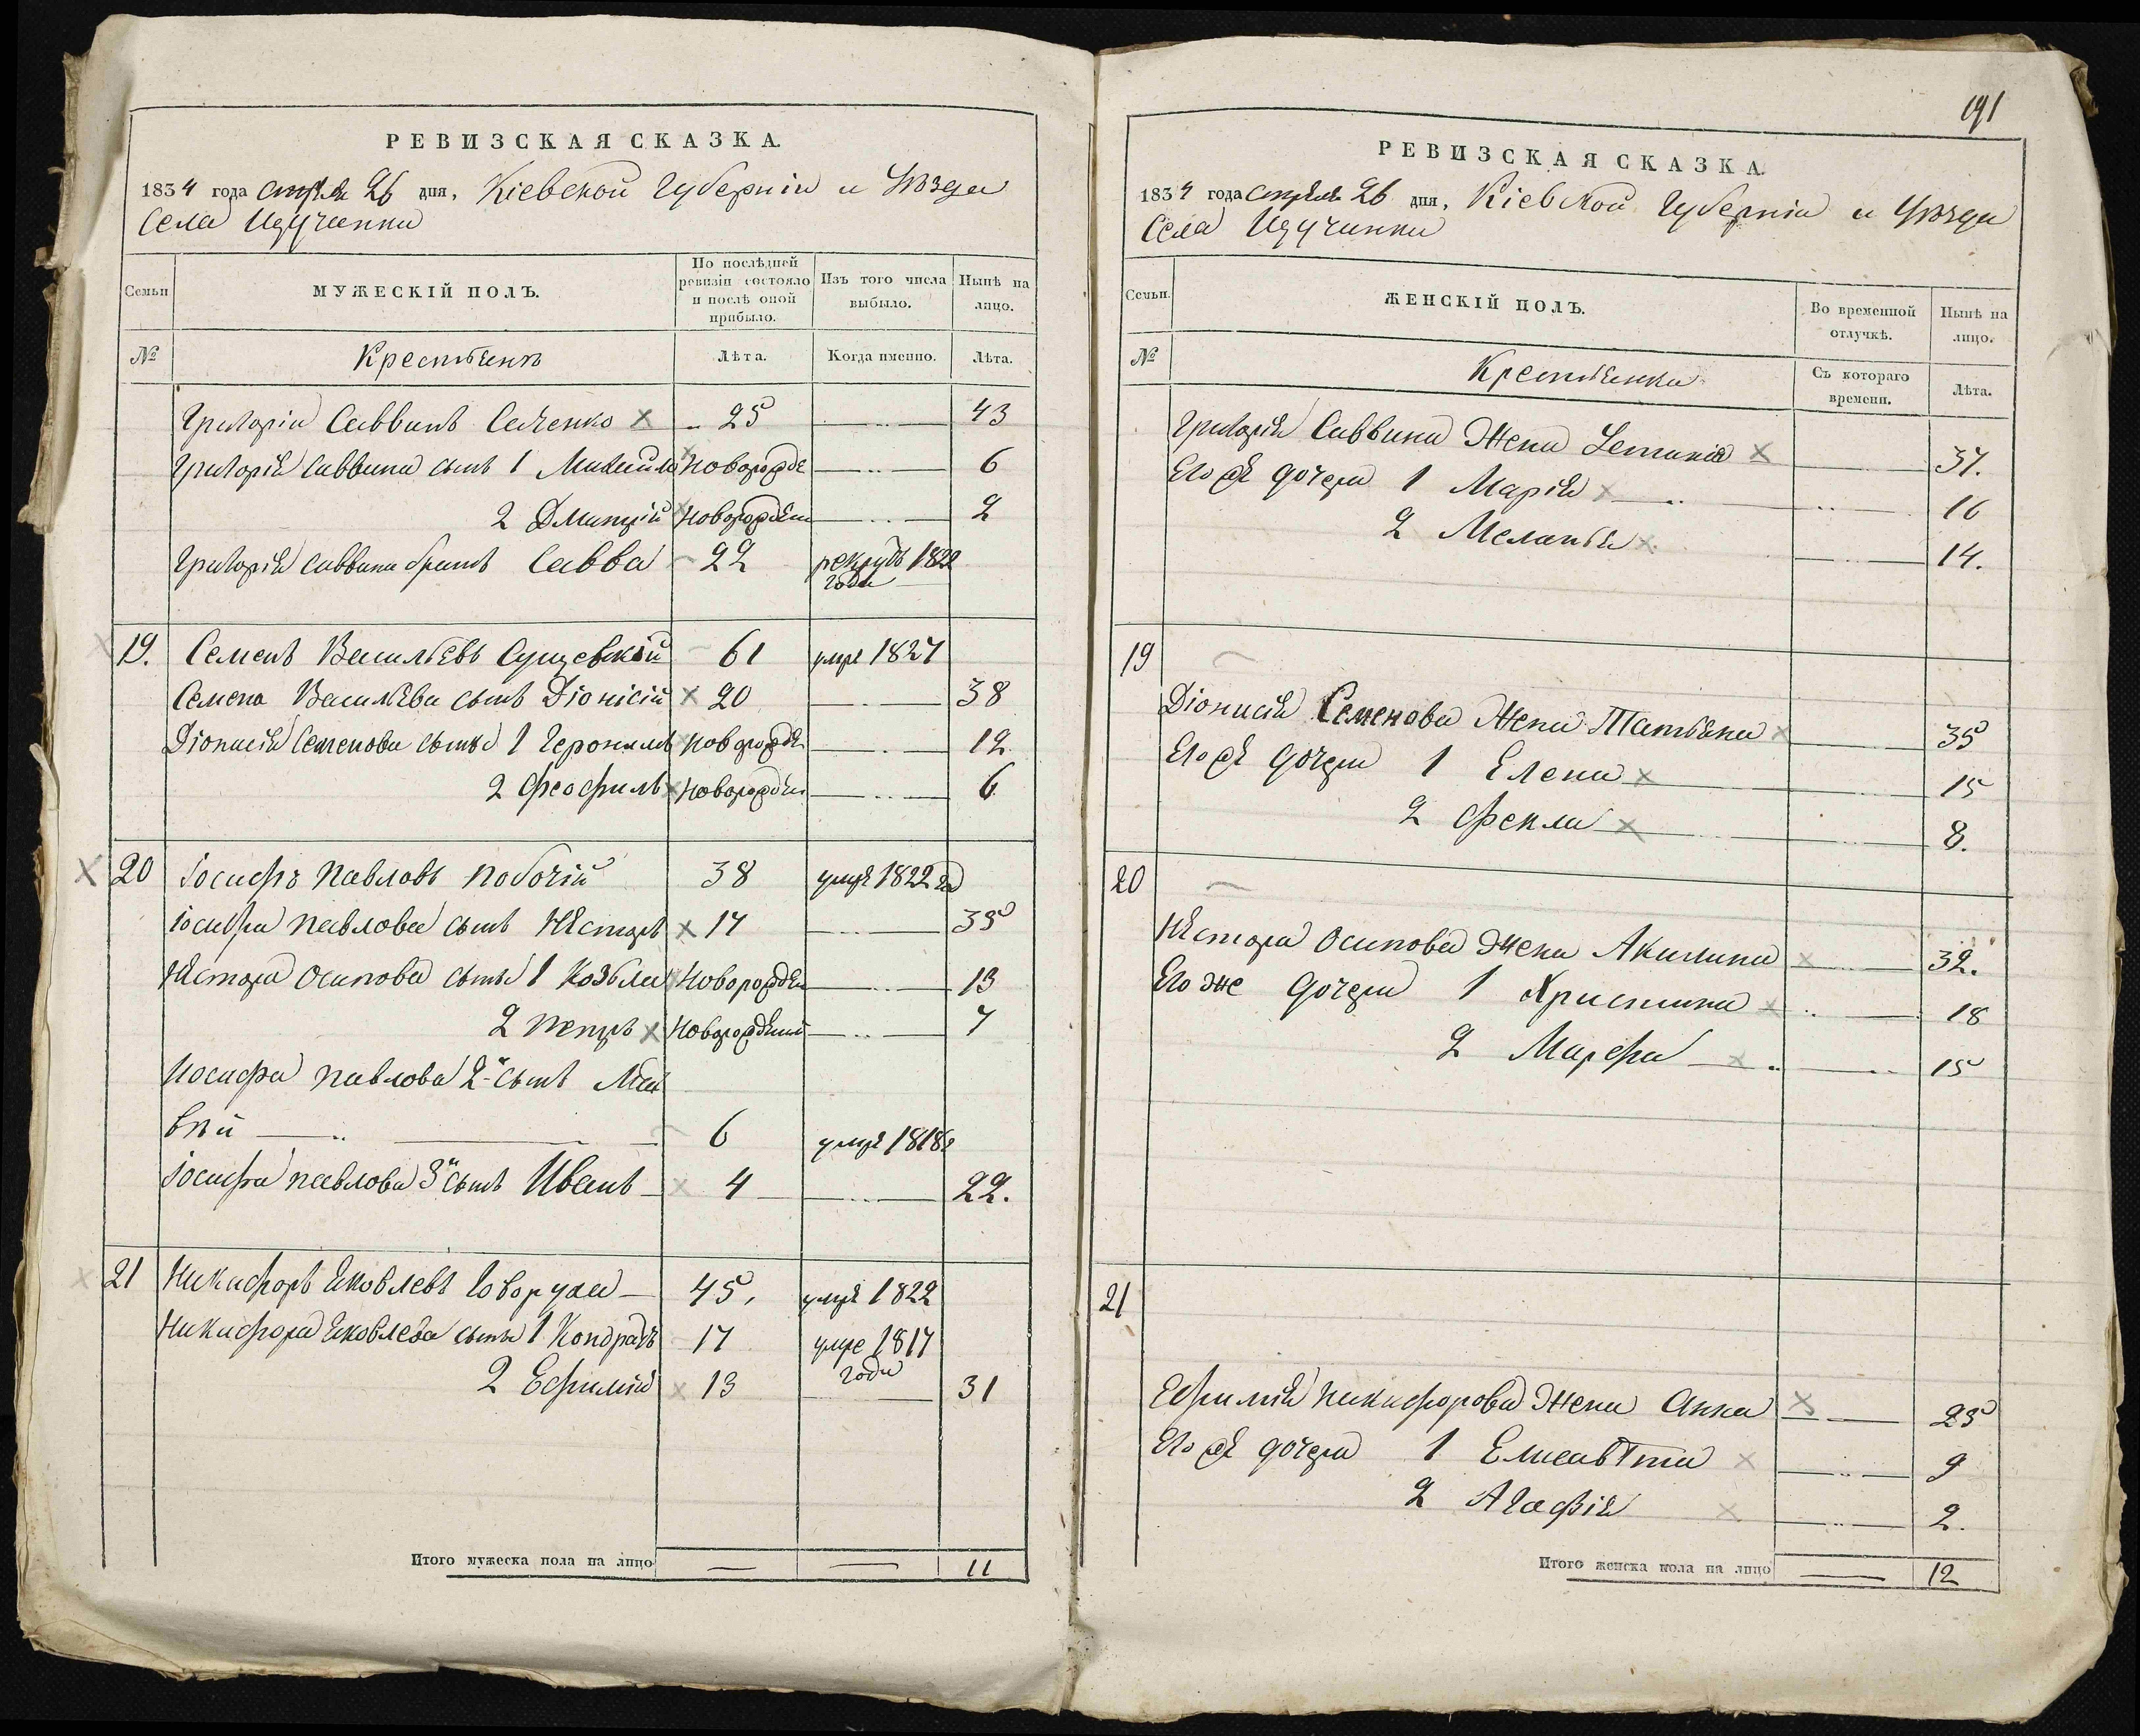 РЕВИЗСКАЯ СКАЗКА.
1834 года апреля 26 дня, Кіевской Губерніи и Уѣзда
Села Ицучинки
Семьи
МУЖЕСКІЙ ПОЛЪ.
По послѣдней ревизіи состояло и послѣ оной прибыло.
Изъ того числа выбыло.
Нынѣ на лицо.
№ Крестьянъ Лѣта. Когда именно. Лѣта.
Григорій Саввинъ Саченко 25 43
Григорія Саввина сынъ 1 Михайло новорожде 6
2 Дмитрій новорожден 2
Григорія Саввина братъ Савва 22 рекрутъ 1822
года
19. Семенъ Васильевъ 61 умре 1827
Семена Васильева сынъ Діонісій 20 38
Діонисія Семенова сыны 1 Iеронимъ новорожде 12
2 Феофилъ новорожден 6
20 Іосифъ Павловъ Побочій 38 умре 1822 го
Іосифа Павлова сынъ Нѣсторъ 17 35
Нѣстора Осипова сыны 1 Козьма Новорожден 13
2 Петръ Новорожденный 7
Иосифа Павлова 2й сынъ Мат
вѣй 6 умре 1818 г
Іосифа Павлова 3й сынъ Иванъ 4 22.
21 Никифоръ Яковлевъ Говоруха 45, умре 1822
Никифора Яковлева сыны 1 Кондратъ 17 умре 1817
года
2 Ефимій 13 31
Итого мужеска пола на лицо 11
191
РЕВИЗСКАЯ СКАЗКА.
1834 года апреля 26 дня, Кіевской Губерніи и Уѣзда
Села Ицучинки
Семьи.
ЖЕНСКІЙ ПОЛЪ.
Во временной отлучкѣ.
Нынѣ на лицо.
№ Крестьянки Съ котораго времени. Лѣта.
Григорія Саввина Жена 37.
Его же дочери 1 Марія 16
2 Меланья 14.
19
Діонисія Семенова Жена Татьяна 35
Его же дочери 1 Елена 15
2 Фекла 8.
20
Нѣстора Осипова Жена Акилина 32.
Его же дочери 1 Христина 18
2 Марфа 15
21
Ефимія Никифорова Жена Анна 25
Его же дочери 1 Елисавѣта 9
2 Агафія 2.
Итого женска пола на лицо 12